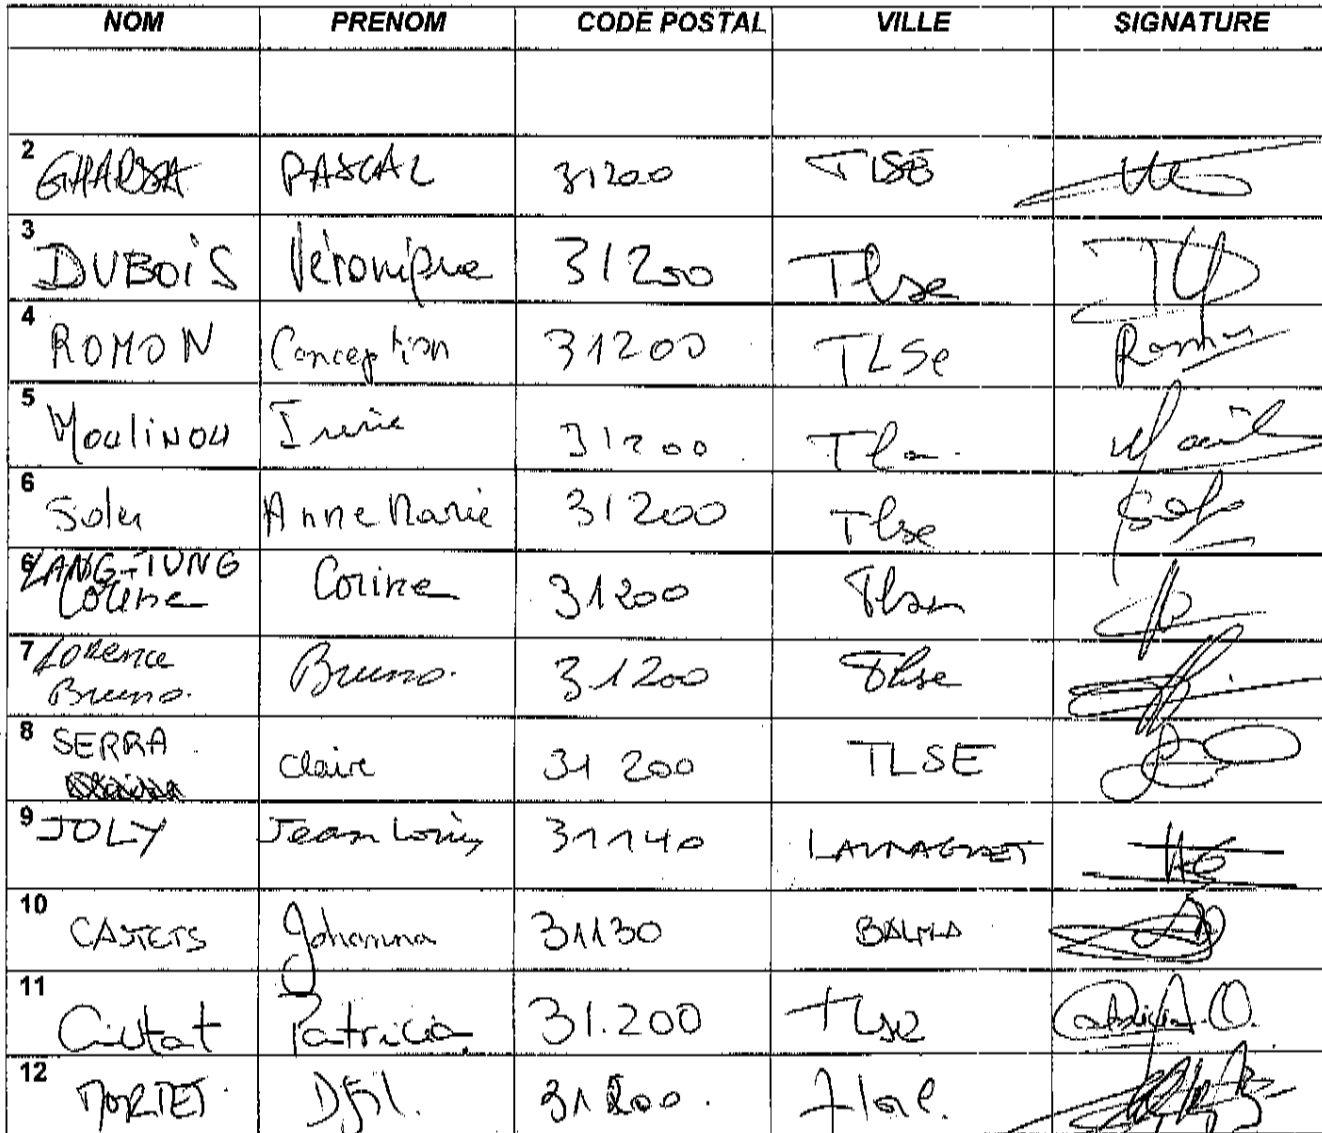 NOM PRENOM CODE POSTAL VILLE SIGNATURE
2 GHARSA PASCAL 31200 TLSE
3 DUBOIS Véronique 31200 Tlse
4 ROMON Conception 31200 TLSe
5 MouliNou Irène 31200
6 Soler Anne Marie 31200 Tlse
6 YANG-TUNG Corine 31200
Corine
7 Lorence Bruno. 31200 Tlse
Bruno.
8 SERRA Claire 31 200 TLSE
9 JOLY Jean Louis 31140 LAUNAGUET
10 CASTETS Johanna 31130 BALMA
11 Ciutat Patricia 31.200 Tlse
12 MORTET 31200.